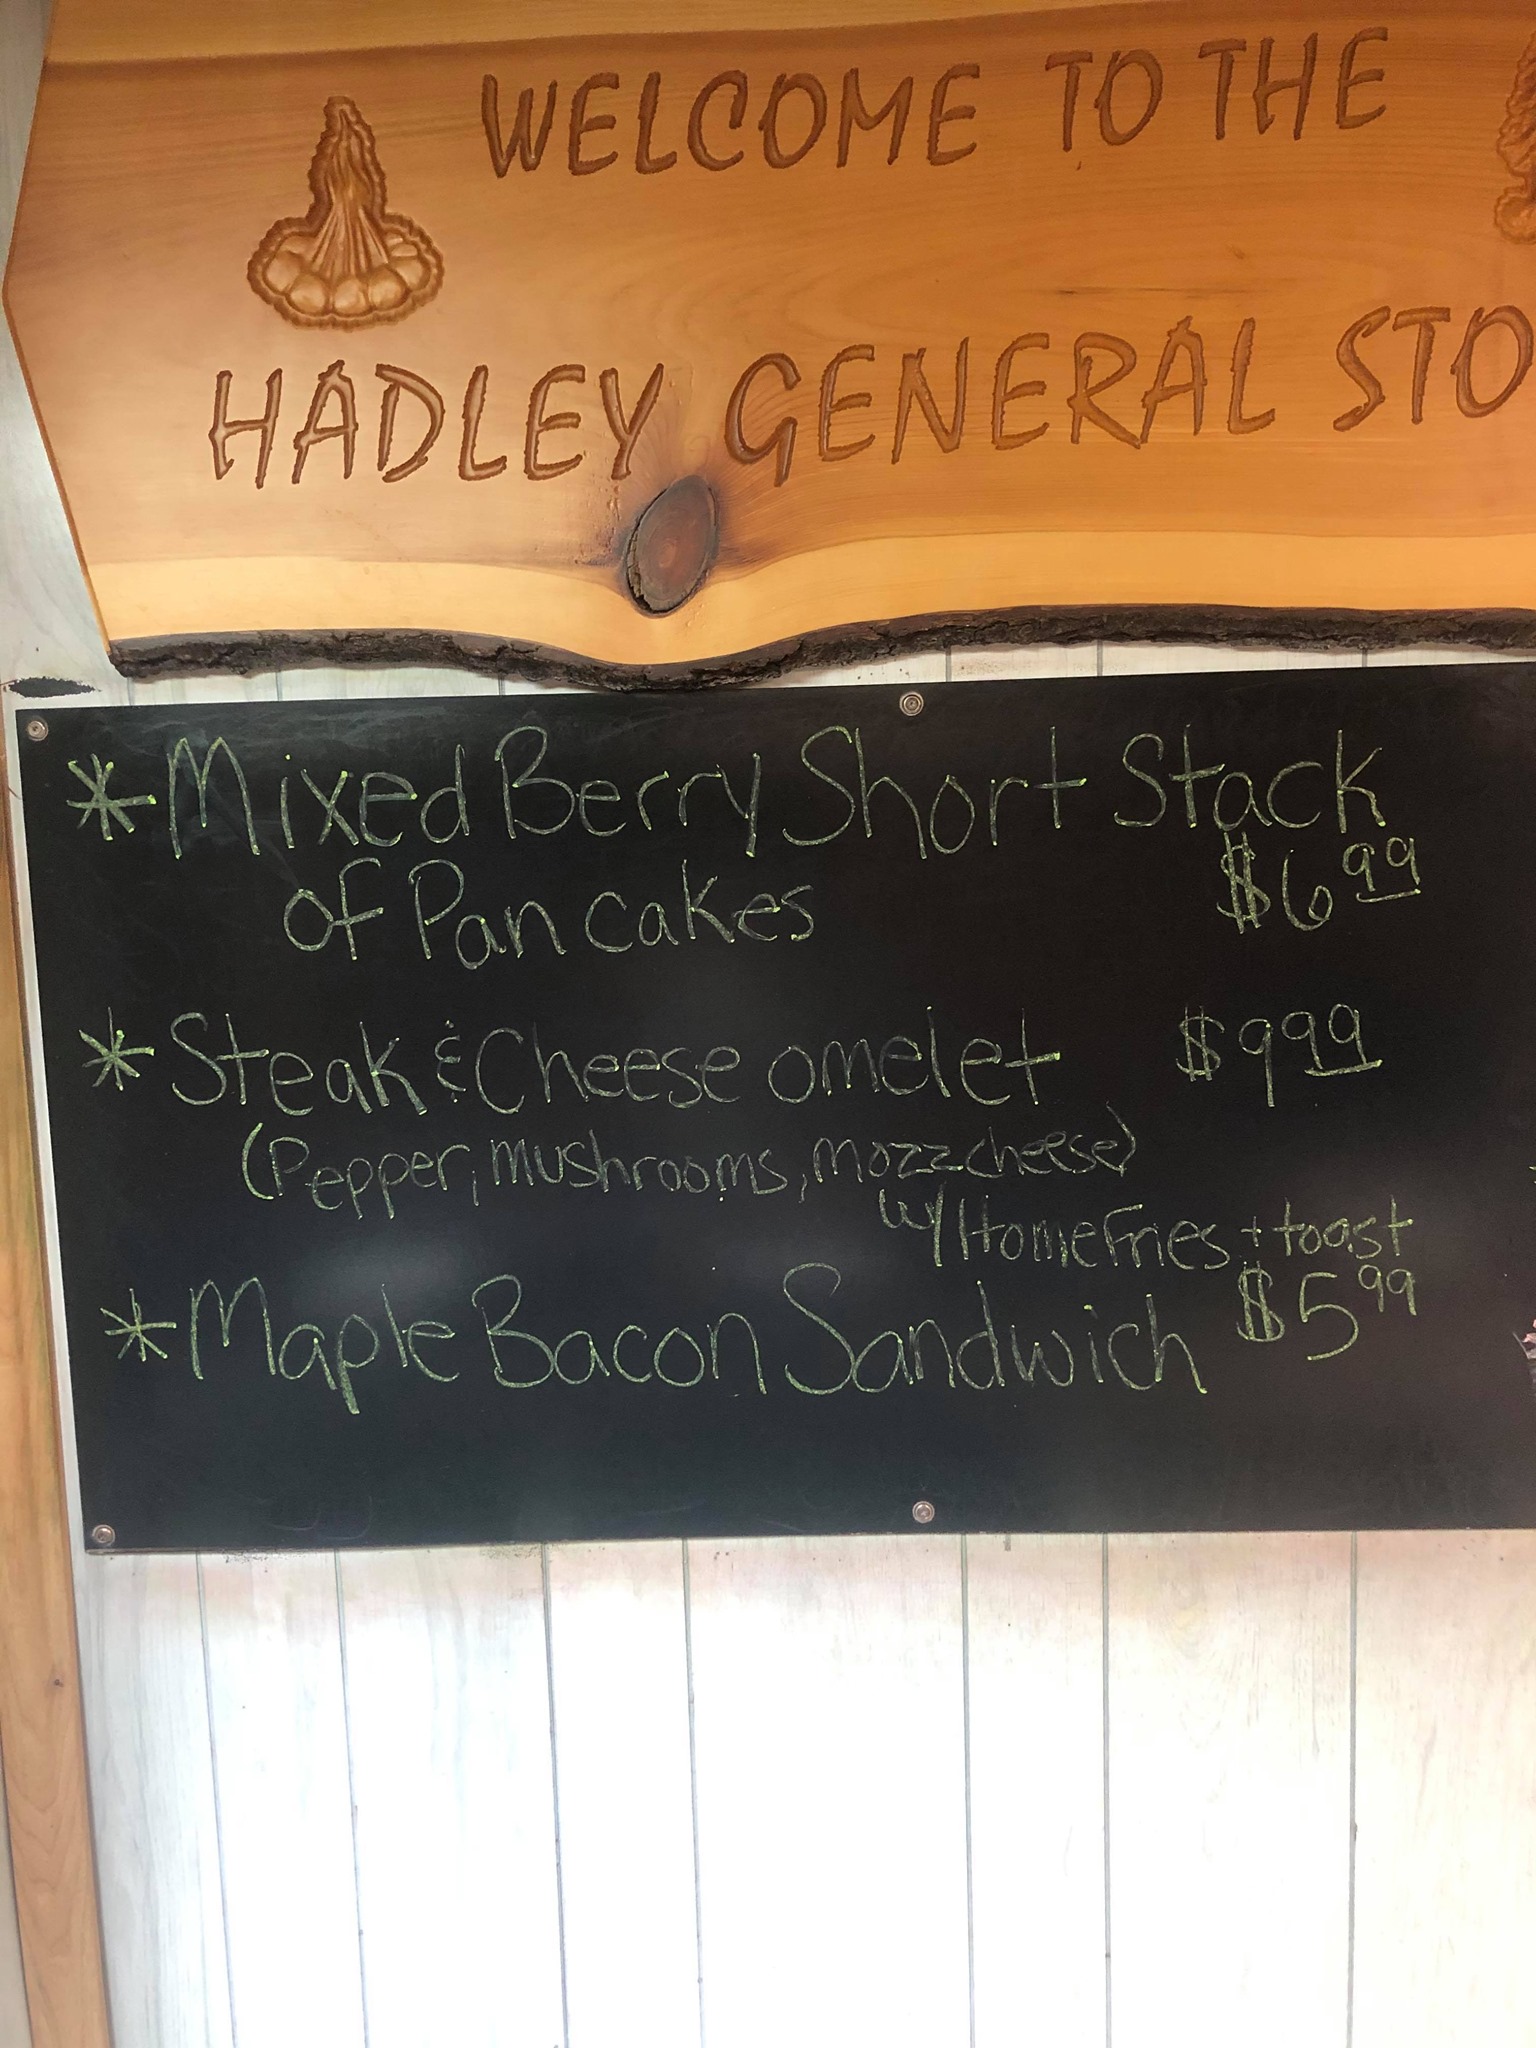 WELCOME TO THE
HADLEY GENERAL STO
* Mixed Berry Short Stack
of Pancakes $6.99
* Steak & Cheese omelet $9.99
(Pepper, mushrooms, mozz cheese)
w/ HomeFries + toast
* Maple Bacon Sandwich $5.99